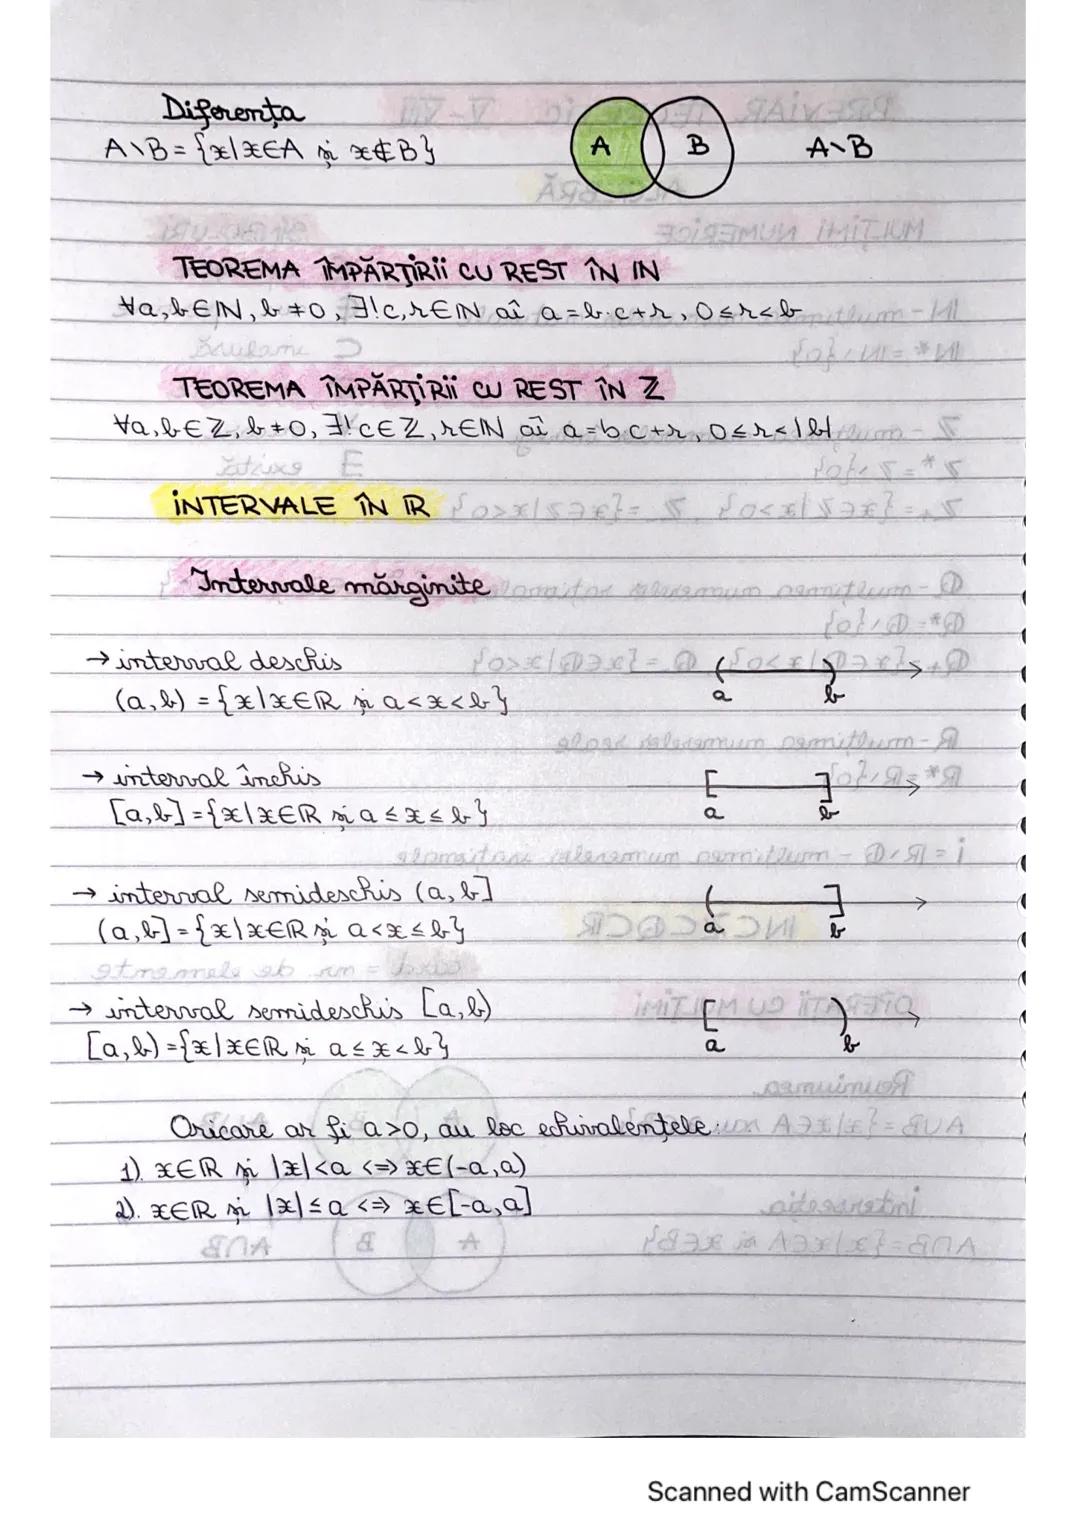 Diferența
A\B={x|x∈A și x∉B}
A B A\B
TEOREMA ÎMPĂRȚIRII CU REST ÎN ℕ
∀a,b∈ℕ, b≠0, ∃!c,r∈ℕ aî a=b·c+r, 0≤r<b
TEOREMA ÎMPĂRȚIRII CU REST ÎN ℤ
∀a,b∈ℤ, b≠0, ∃!c∈ℤ, r∈ℕ aî a=b·c+r, 0≤r<|b|
INTERVALE ÎN ℝ
Intervale mărginite
→ interval deschis
(a,b)={x|x∈ℝ și a<x<b}
a b
→ interval închis
[a,b]={x|x∈ℝ și a≤x≤b}
a b
→ interval semideschis (a,b]
(a,b]={x|x∈ℝ și a<x≤b}
a b
→ interval semideschis [a,b)
[a,b)={x|x∈ℝ și a≤x<b}
a b
Oricare ar fi a>0, au loc echivalențele:
1). x∈ℝ și |x|<a <=> x∈(-a,a)
2). x∈ℝ și |x|≤a <=> x∈[-a,a]
Scanned with CamScanner